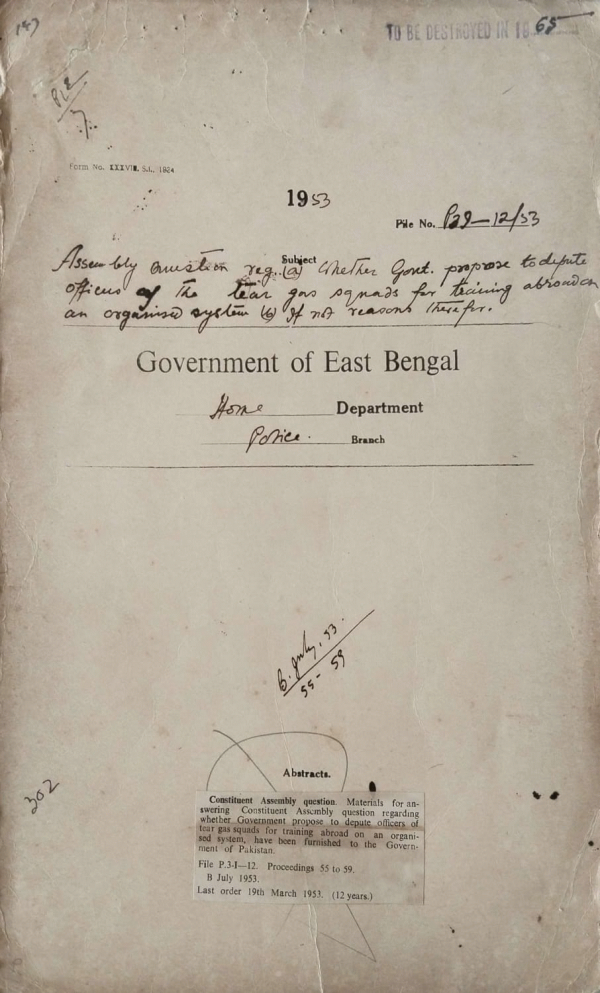 TO BE DESTROYED IN 19 65
Form No. XXXVIII, S.I., 1934
1953
File No. P3I-12/53
Subject
Assembly question reg. (a) Whether Govt. propose to depute
officers of the tear gas squads for training abroad on
an organised system (b) If not reasons therefor.
Government of East Bengal
Home Department
Police. Branch
B. July, 53.
55-59
302
Abstracts.
Constituent Assembly question. Materials for an-
swering Constituent Assembly question regarding
whether Government propose to depute officers of
tear gas squads for training abroad on an organi-
sed system, have been furnished to the Govern-
ment of Pakistan.
File P.3-I—12. Proceedings 55 to 59.
B July 1953.
Last order 19th March 1953. (12 years.)